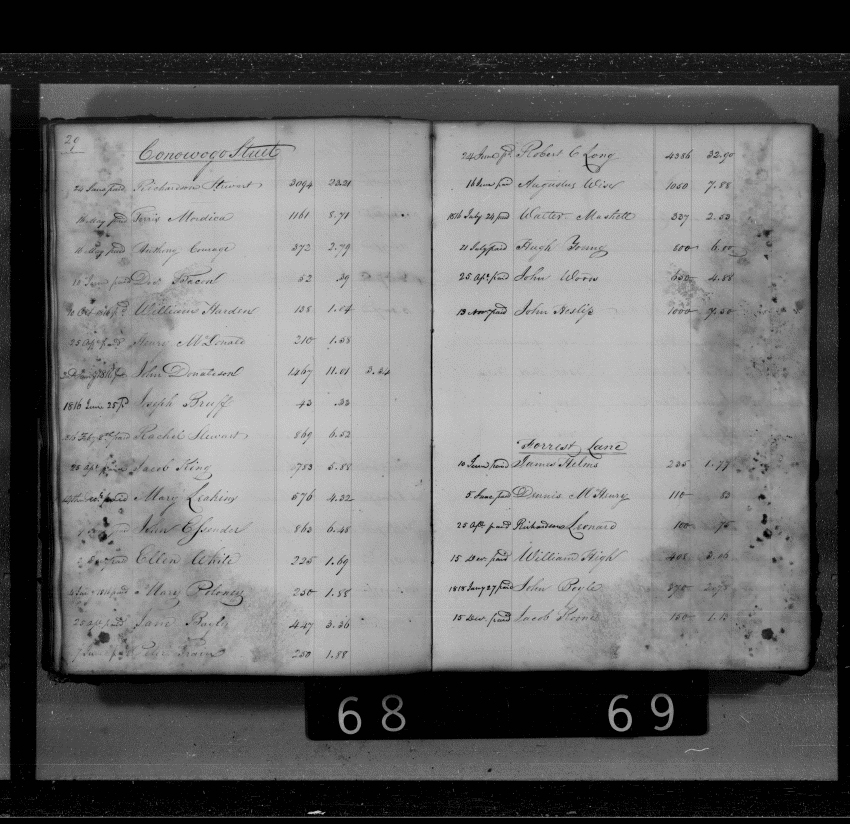 29
Conowogo Street
24 June paid Richardson Stewart 3094 23.21
16 May paid Ferris Mordica 1161 8.71
16 May paid Anthony Courage 372 2.79
10 June paid 52 .39
William Harden 138 1.04
25 Apl Henry McDonald 210 1.58
John Donaldson 1467 11.01 2.24
1816 June 25 pd Joseph Bruff 43 .33
Rachel Stewart 869 6.52
25 Apl paid Jacob King 783 5.88
Mary Leakins 576 4.32
John Essender 863 6.48
paid Ellen White 225 1.69
paid Mary 250 1.88
25 Apl paid Jane Boyle 447 3.36
250 1.88
24 June pd Robert C Long 4386 32.90
16 June paid Augustus Wise 1050 7.88
1816 July 24 paid Walter Maskell 337 2.53
21 July paid Hugh Young 800 6.00
25 Apl paid John Woods 650 4.88
13 Nov paid John Heslip 1000 7.50
Forrest Lane
10 June paid James Helms 235 1.77
5 June paid Dennis McHenry 110 83
25 Apl paid Richardson Leonard 100 75
15 Dec. paid William High 408 3.06
1818 Jany 27 paid John Boyle 370 2.78
15 Dec. paid Jacob 150 1.13
68 69